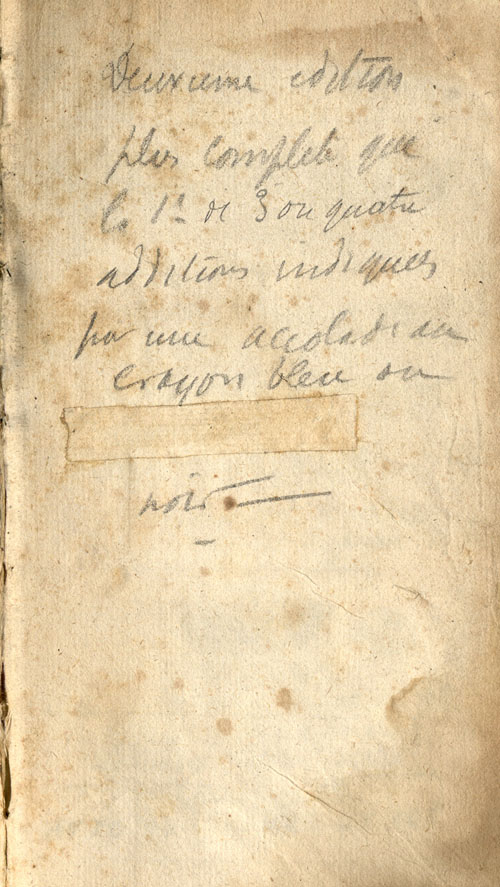 Deuxieme edition
plus complete que
la 1e de 3 ou quatre
additions indiquees
par une accolade au
crayon bleu ou
noir